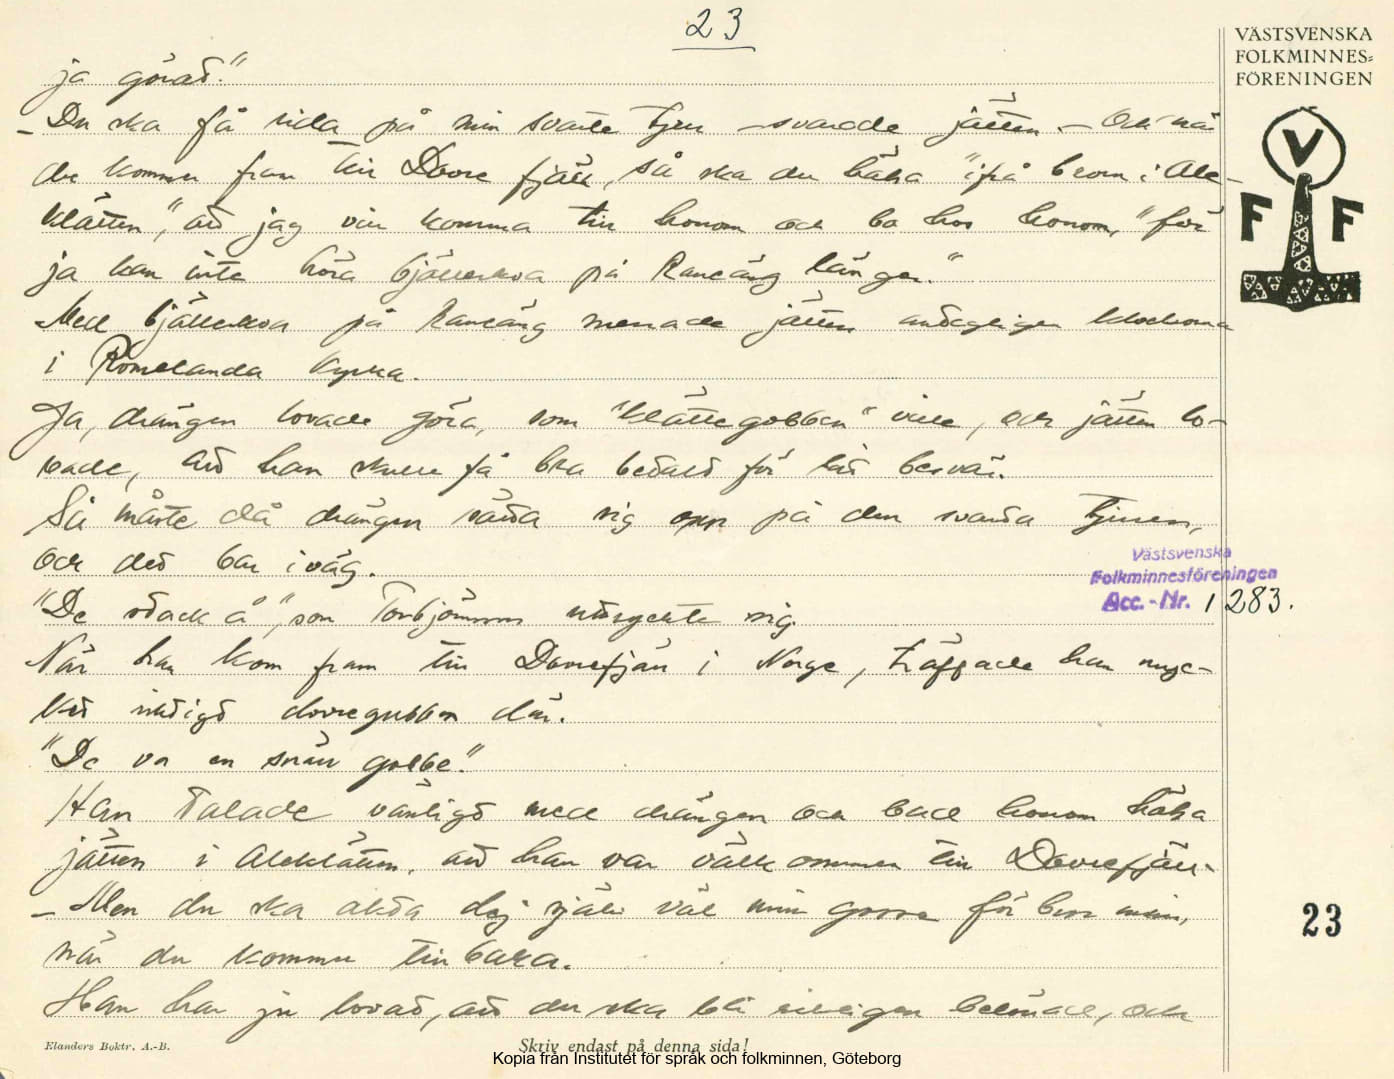 23
VÄSTSVENSKA
FOLKMINNES-
FÖRENINGEN
V
F F
ja görat."
- Du ska få rida på min svarte tjur - svarade jätten. - Och när
du kommer fram till Dovre fjäll, så ska du hälsa "ifrå brorn i Ale-
klätten", att jag vill komma till honom och bo hos honom, "för
ja kan inte höra bjällerkoa på Ranäng länger."
Med bjällerkoa på Ranäng menade jätten antagligen klockorna
i Romelanda kyrka.
Ja, drängen lovade göra, som "klättegobben" ville, och jätten lo-
vade, att han skulle få bra betalt för sitt besvär.
Så måste då drängen sätta sig opp på den svarta tjuren,
och det bar iväg.
"De stack å", som Torbjörnsson uttryckte sig.
När han kom fram till Dovrefjäll i Norge, träffade han myc-
ket riktigt dovregubben där.
"De va en snäll gobbe."
Han talade vänligt med drängen och bad honom hälsa
jätten i Aleklätten, att han var välkommen till Dovrefjäll.
- Men du ska akta dej själv väl min gosse för bror min,
när du kommer tillbaka.
Han har ju lovat, att du ska bli rikligen belönad, och
Västsvenska
Folkminnesföreningen
Acc.-Nr. 1283.
23
Elanders Boktr. A.-B.
Skriv endast på denna sida!
Kopia från Institutet för språk och folkminnen, Göteborg